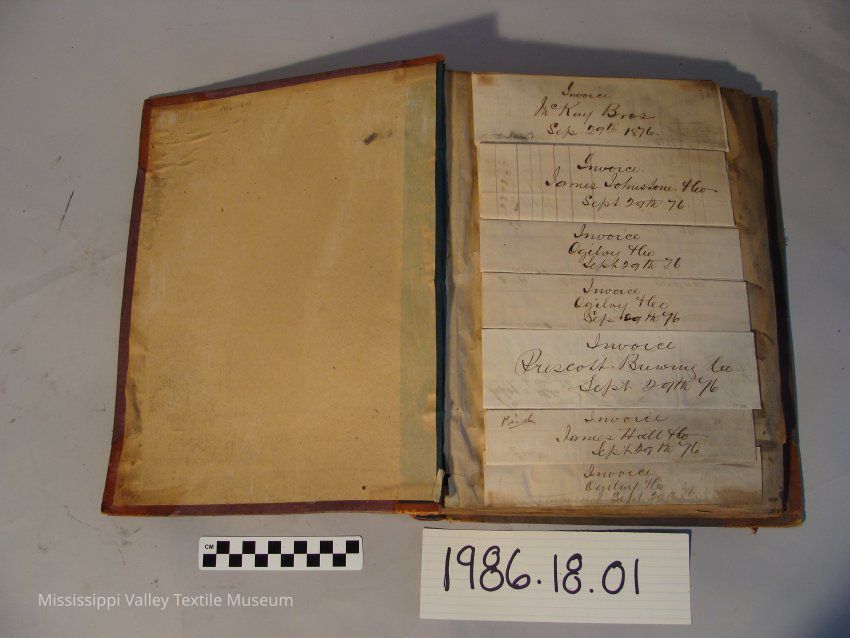 1986.18.01
Invoice
McKay Bros
Sep. 29th 1876.
Invoice
James Johnstone & Co
Sept 29th 76
Invoice
Ogilvy & Co
Sept 29th 76
Invoice
Ogilvy & Co
Sep 29th 76
Invoice
Prescott Brewing Co
Sept 29th 76
Paid
Invoice
James Hall & Co
Sept 29th 76
Invoice
Ogilvy & Co
Sept 76
CM
1986.18.01
Mississippi Valley Textile Museum